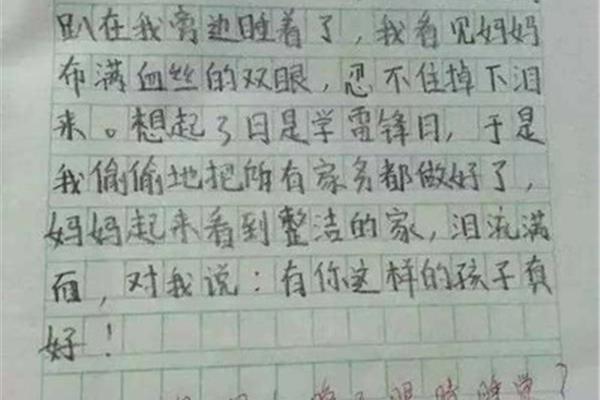 趴在我旁边睡着了，我看见妈妈
布满血丝的双眼，忍不住掉下泪
来。想起了日是学雷锋日，于是
我偷偷地把所有家务都做好了，
妈妈起来看到整洁的家，泪流满
面，对我说：有你这样的孩子真
好！
眼睛睡觉？